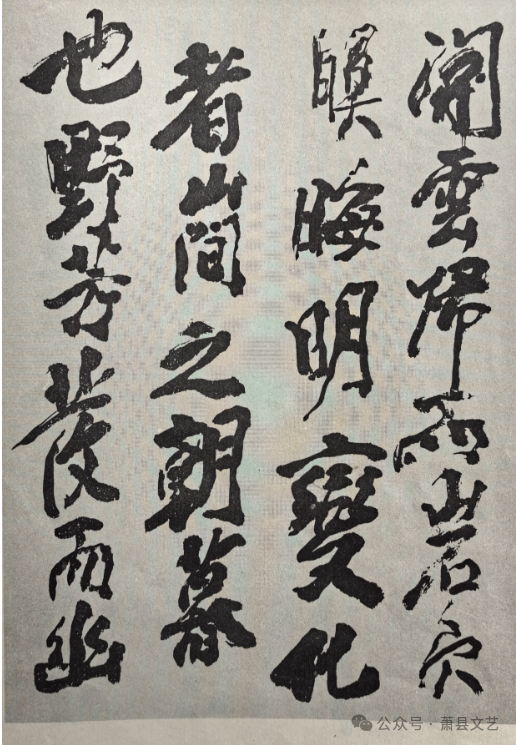 開雲歸而山岩穴
暝晦明變化
者山間之朝暮
也野芳發而幽
公众号·萧县文艺